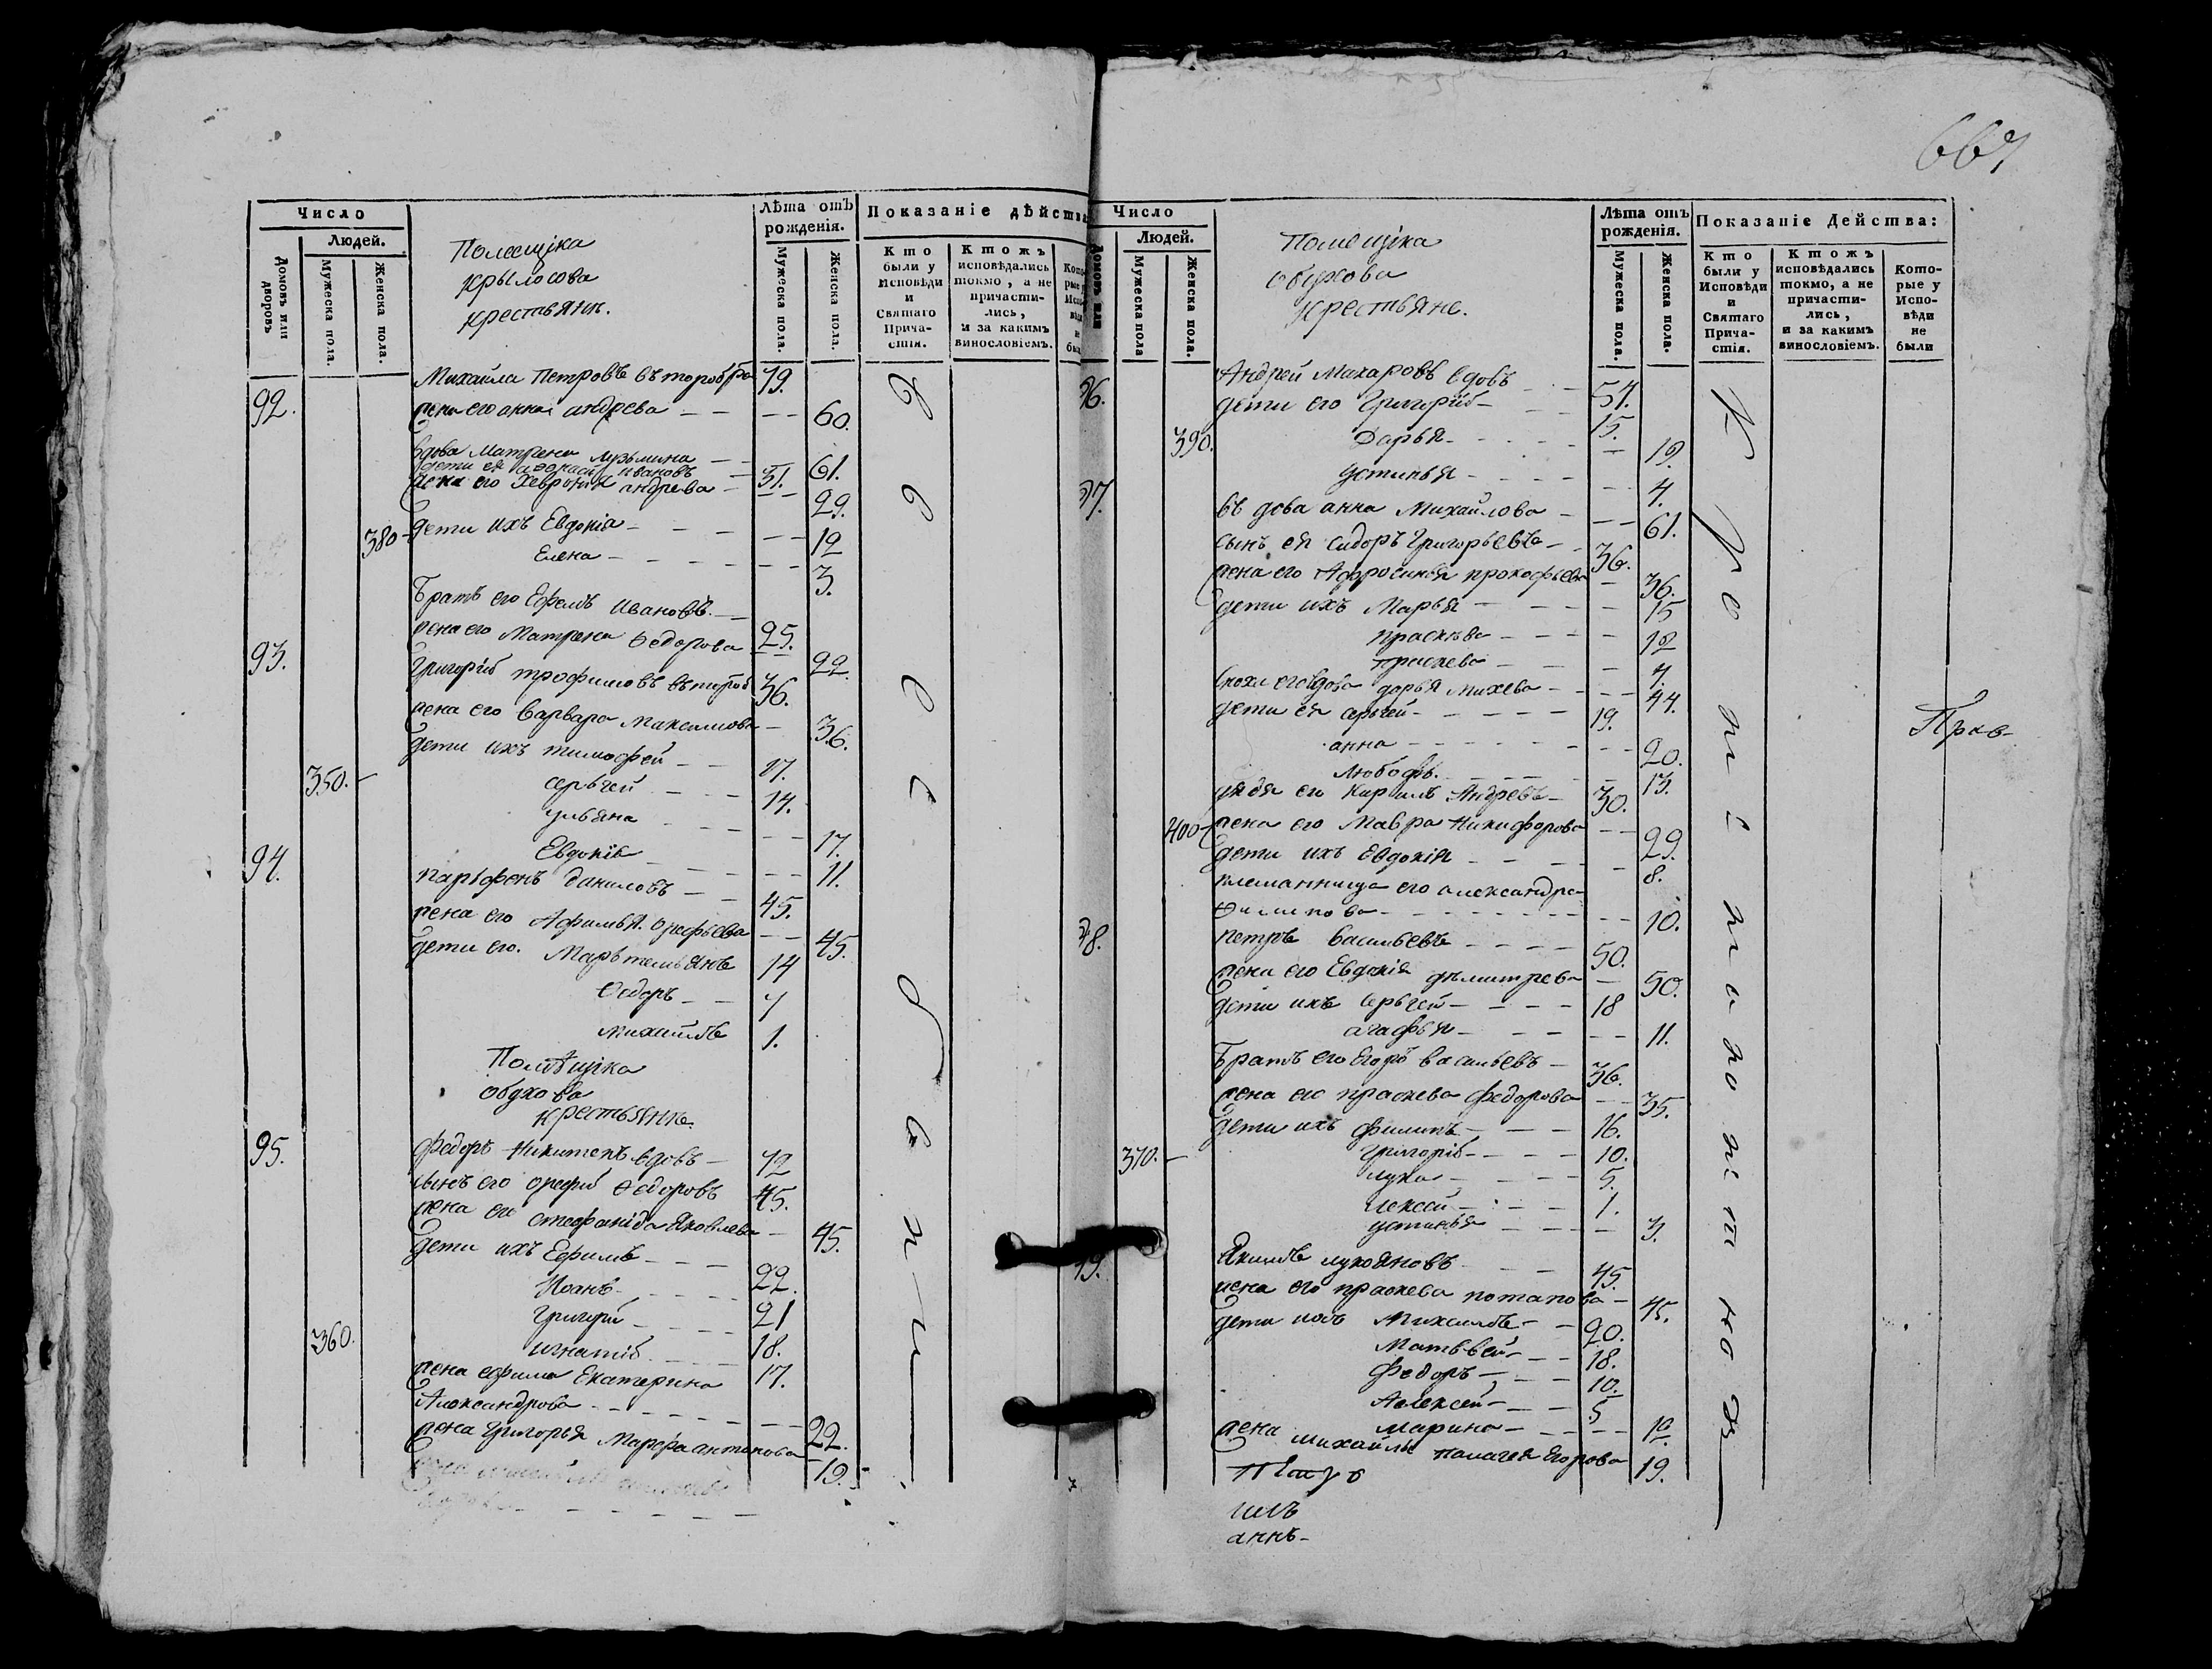 667
Число
Людей.
Домовъ или дворовъ
Мужеска пола.
Женска пола.
Помещіка
крылосова
крестьяне.
Лѣта отъ рожденія.
Мужеска пола.
Женска пола.
Показаніе дѣйства
Кто были у Исповѣди и Святаго Прича-стія.
Ктожъ исповѣдались токмо, а не причасти-лись, и за какимъ винословіемъ.
92. Михайла Петровъ въторобра 79.
жена его анна андрева 60.
вдова Матрена кузьмина 61.
дети ея ивановъ 31.
жена его Хеврония андрева 29.
380 дети ихъ Евдокія 12
Елена 3.
Братъ его Ефемъ Ивановъ. 25.
жена его Матрена Ѳедорова 22.
93. Григорій трофимовъ въторой 36.
жена его варвара Максимова 36.
дети ихъ тимофей 17.
350. серьгей 14.
ульяна 17.
Евдокія 11.
94. парьфенъ даниловъ 45.
жена его Афимья орефьева 45.
дети его. Марьтемьянъ 14
Ѳедоръ 7
михайлъ 1.
Помѣщіка
обухова
крестьяне.
95. Федоръ Никитенъ вдовъ 72
сынъ его орефій Ѳедоровъ 45.
жена его стефаніда Яковлева 45.
дети ихъ Ефимъ 22.
Иоанъ 21
Григорій 18.
360. игнатій 17.
жена ефима Екатерина
Александрова 22.
жена Григорья Марфа антипова 19.
Число
Людей.
Домовъ или
Мужеска пола
Женска пола.
Помещіка
обухова
крестьяне.
Лѣта отъ рожденія.
Мужеска пола.
Женска пола.
Показаніе Действа:
Кто были у Исповѣди и Святаго Прича-стія.
Ктожъ исповѣдались токмо, а не причасти-лись, и за какимъ винословіемъ.
Кото-рые у Испо-вѣди не были
96. Андрей Макаровъ вдовъ 57.
дети его Григорій 15.
390. Дарья 19.
устинья 4.
97. въдова анна Михайлова 61.
сынъ ея сидоръ Григорьевъ 36.
жена его Афросинья прокофьева 36.
дети ихъ Марья 15
праскева 12
праскева 7.
сноха его вдова дарья михева 44.
дети ея серьгей 19.
анна 20.
любофь. 13.
дядя ея Кирилъ Андревъ 30.
400 жена его Мавра Никифорова 29.
дети ихъ Евдокія 8.
племянница его александра
Филипова 10.
98. петръ васильевъ 50.
жена его Евдокія дьмитрева 50.
дети ихъ серьгей 18
агафья 11.
Братъ его Егоръ васильевъ 36.
жена его праскева федорова 35.
дети ихъ филипъ 16.
370. Григорій 10.
лука 5.
Алексей 1.
устинья 3.
Якимъ лукояновъ 45.
жена его прасковья потапова 45.
дети ихъ Михайлъ 20.
Матьвей 18.
Федоръ 10.
Алексей 5
Марина 12.
жена михайлы палагея Егорова 19.